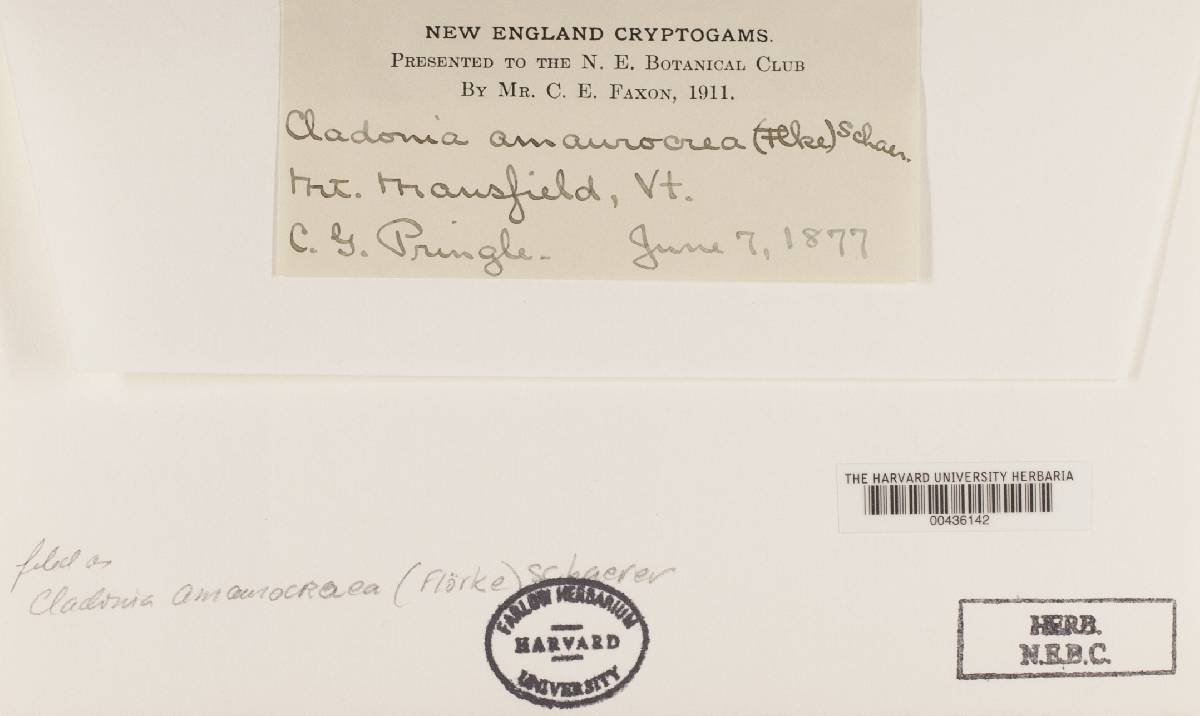 NEW ENGLAND CRYPTOGAMS.
PRESENTED TO THE N. E. BOTANICAL CLUB
BY MR. C. E. FAXON, 1911.
Cladonia amaurocrea (Flke) Schaer.
Mt. Mansfield, Vt.
C. G. Pringle. June 7, 1877
THE HARVARD UNIVERSITY HERBARIA
00436142
filed as
Cladonia amaurocraea (Flörke) Schaerer
FARLOW HERBARIUM
HARVARD
UNIVERSITY
HERB.
N.E.B.C.